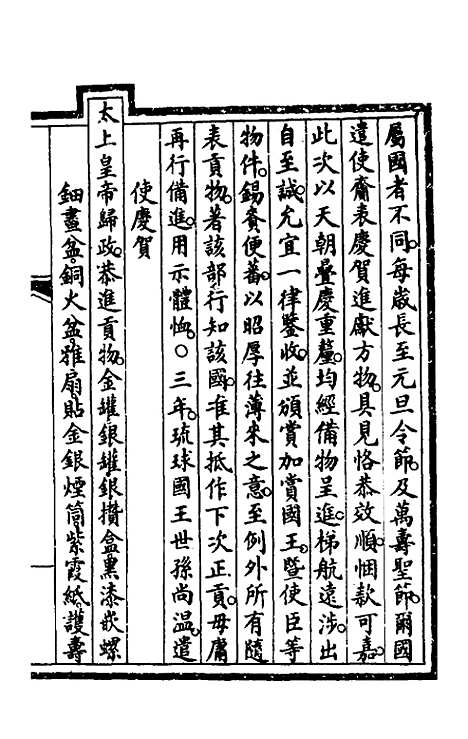 屬國者不同。每歲長至元旦令節。及萬壽聖節。爾國
遣使齎表慶賀進獻方物。具見恪恭效順。悃款可嘉。
此次以天朝疊慶重釐。均經備物呈進。梯航遠涉。出
自至誠。允宜一律鑒收。並頒賞加賞國王。暨使臣等
物件。錫賚便蕃。以昭厚往薄來之意。至例外所有隨
表貢物。著該部行知該國。准其抵作下次正貢。毋庸
再行備進。用示體恤。○三年。琉球國王世孫尚溫。遣
使慶賀
太上皇帝歸政。恭進貢物。金罐銀罐銀攢盒黑漆嵌螺
鈿畫盆。銅火盆。雅扇。貼金銀煙筒。紫霞紙。護壽